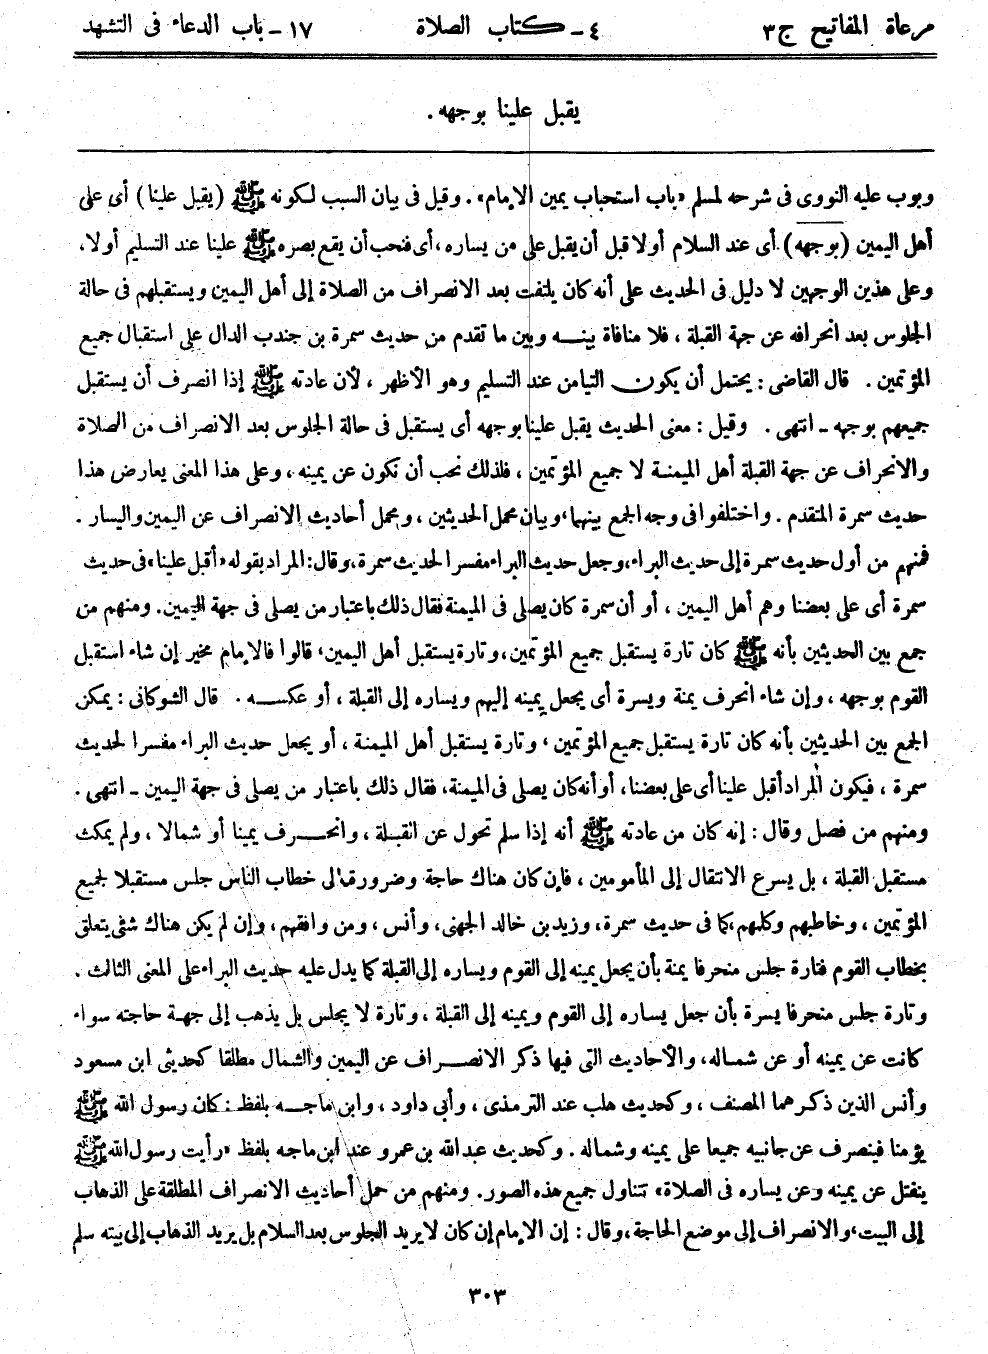 مرعاة المفاتيح ج ٣
٤ - كتاب الصلاة
١٧ - باب الدعاء فى التشهد
يقبل علينا بوجهه .
وبوب عليه النووى فى شرحه لمسلم «باب استحباب يمين الإمام» . وقيل فى بيان السبب لكونه ﷺ (يقبل علينا) أى على
أهل اليمين (بوجهه) أى عند السلام أولا قبل أن يقبل على من يساره، أى فنحب أن يقع بصره ﷺ علينا عند التسليم أولا،
وعلى هذين الوجهين لا دليل فى الحديث على أنه كان يلتفت بعد الانصراف من الصلاة إلى أهل اليمين ويستقبلهم فى حالة
الجلوس بعد انحرافه عن جهة القبلة ، فلا منافاة بينه وبين ما تقدم من حديث سمرة بن جندب الدال على استقبال جميع
المؤتمين . قال القاضى : يحتمل أن يكون التيامن عند التسليم وهو الأظهر ، لأن عادته ﷺ إذا انصرف أن يستقبل
جميعهم بوجهه - انتهى . وقيل : معنى الحديث يقبل علينا بوجهه أى يستقبل فى حالة الجلوس بعد الانصراف من الصلاة
والانحراف عن جهة القبلة أهل الميمنة لا جميع المؤتمين ، فلذلك نحب أن نكون عن يمينه ، وعلى هذا المعنى يعارض هذا
حديث سمرة المتقدم . واختلفوا فى وجه الجمع بينهما، وبيان محمل الحديثين ، ومحمل أحاديث الانصراف عن اليمين واليسار .
فمنهم من أول حديث سمرة إلى حديث البراء، وجعل حديث البراء مفسرا لحديث سمرة، وقال: المراد بقوله «أقبل علينا» فى حديث
سمرة أى على بعضنا وهم أهل اليمين ، أو أن سمرة كان يصلى فى الميمنة فقال ذلك باعتبار من يصلى فى جهة اليمين. ومنهم من
جمع بين الحديثين بأنه ﷺ كان تارة يستقبل جميع المؤتمين، وتارة يستقبل أهل اليمين، قالوا فالإمام مخير إن شاء استقبل
القوم بوجهه ، وإن شاء انحرف يمنة ويسرة أى يجعل يمينه إليهم ويساره إلى القبلة ، أو عكسه . قال الشوكانى : يمكن
الجمع بين الحديثين بأنه كان تارة يستقبل جميع المؤتمين ، وتارة يستقبل أهل الميمنة ، أو يجعل حديث البراء مفسرا لحديث
سمرة ، فيكون المراد أقبل علينا أى على بعضنا، أو أنه كان يصلى فى الميمنة، فقال ذلك باعتبار من يصلى فى جهة اليمين - انتهى .
ومنهم من فصل وقال : إنه كان من عادته ﷺ أنه إذا سلم تحول عن القبلة ، وانحرف يمينا أو شمالا ، ولم يمكث
مستقبل القبلة ، بل يسرع الانتقال إلى المأمومين ، فإن كان هناك حاجة وضرورة إلى خطاب الناس جلس مستقبلا لجميع
المؤتمين ، وخاطبهم وكلمهم، كما فى حديث سمرة، وزيد بن خالد الجهنى، وأنس ، ومن وافقهم، وإن لم يكن هناك شئى يتعلق
بخطاب القوم فتارة جلس منحرفا يمنة بأن يجعل يمينه إلى القوم ويساره إلى القبلة كما يدل عليه حديث البراء على المعنى الثالث .
وتارة جلس منحرفا يسرة بأن جعل يساره إلى القوم ويمينه إلى القبلة ، وتارة لا يجلس بل يذهب إلى جهة حاجته سواء
كانت عن يمينه أو عن شماله، والأحاديث التى فيها ذكر الانصراف عن اليمين والشمال مطلقا كحديثى ابن مسعود
وأنس الذين ذكرهما المصنف ، وكحديث هلب عند الترمذى ، وأبى داود ، وابن ماجه بلفظ : كان رسول الله ﷺ
يؤمنا فينصرف عن جانبيه جميعا على يمينه وشماله . وكحديث عبد الله بن عمرو عند ابن ماجه بلفظ «رأيت رسول الله ﷺ
ينفتل عن يمينه وعن يساره فى الصلاة» تتناول جميع هذه الصور. ومنهم من حمل أحاديث الانصراف المطلقة على الذهاب
إلى البيت، والانصراف إلى موضع الحاجة، وقال : إن الإمام إن كان لا يريد الجلوس بعد السلام بل يريد الذهاب إلى بيته سلم
٣٠٣